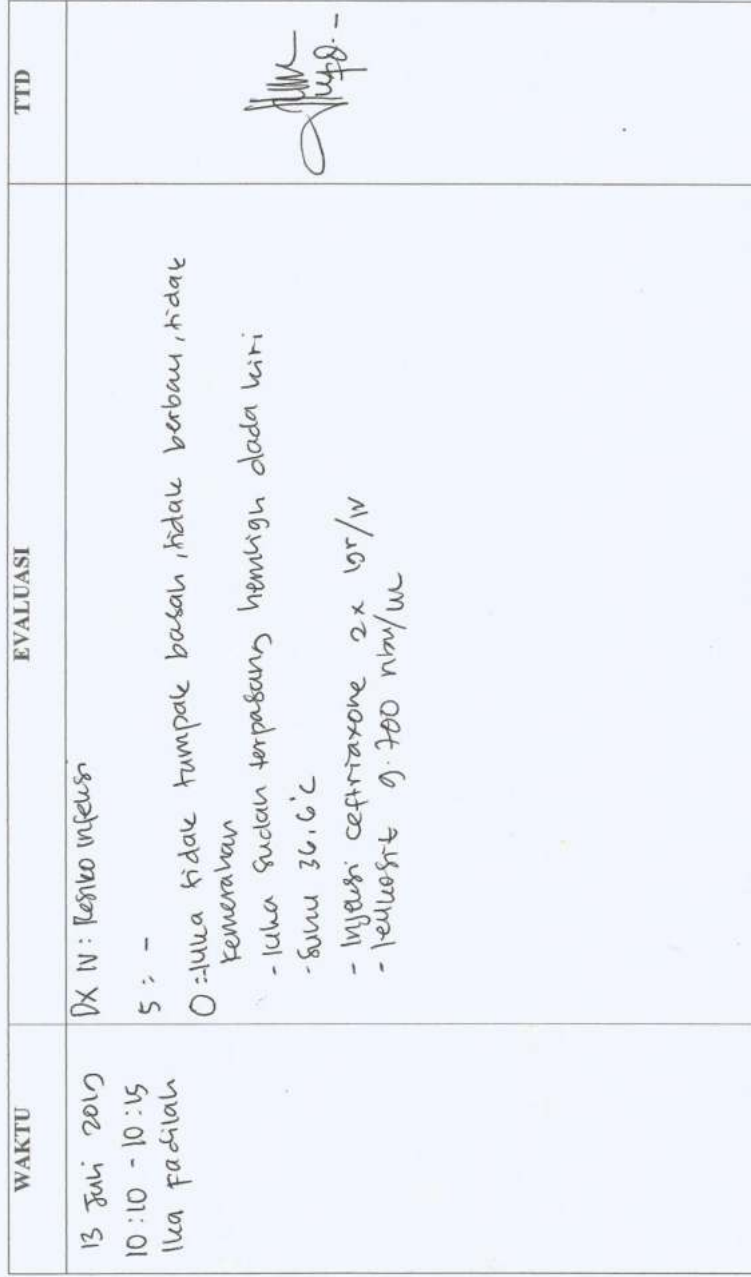 WAKTU
EVALUASI
TTD
13 Juli 2019
10:10 - 10:15
Ika Fadilah
DX IV : Resiko infeksi
S : -
O : - luka tidak tumpak basah, tidak berbau, tidak
kemerahan
- luka sudah terpasang hemligh dada kiri
- Suhu 36,6°C
- Injeksi ceftriaxone 2x 1gr/IV
- Leukosit 9.700